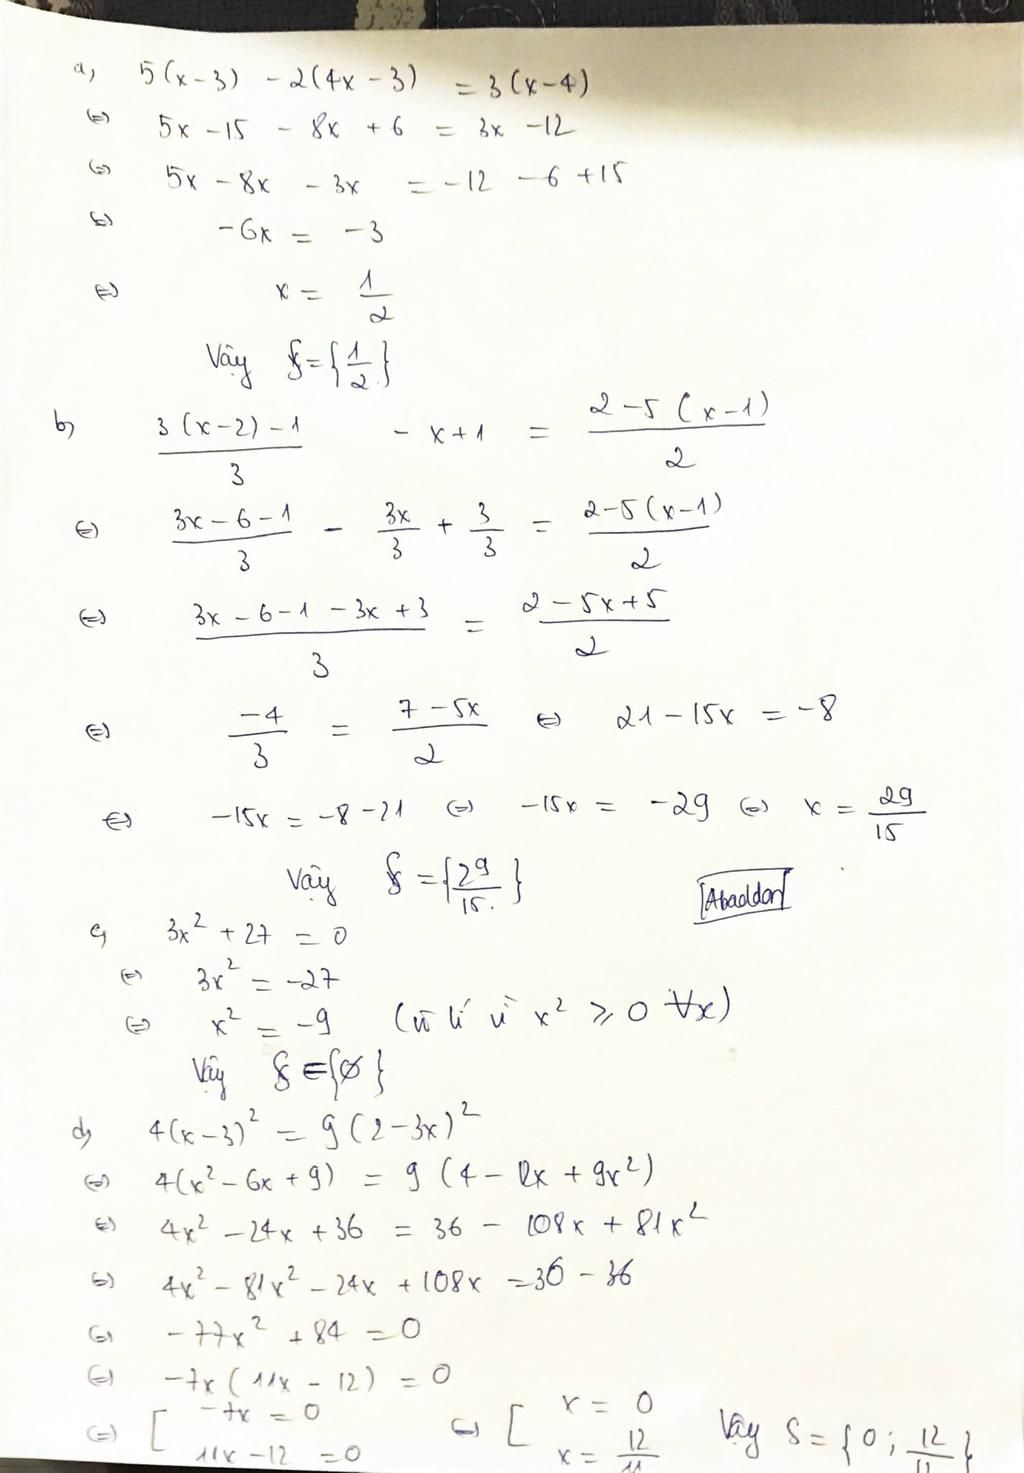 a) 5(x-3) - 2(4x-3) = 3(x-4)
⇔ 5x - 15 - 8x + 6 = 3x - 12
⇔ 5x - 8x - 3x = -12 - 6 + 15
⇔ -6x = -3
⇔ x = 1/2
Vậy S = {1/2}
b) (3(x-2)-1)/3 - x + 1 = (2-5(x-1))/2
⇔ (3x-6-1)/3 - 3x/3 + 3/3 = (2-5(x-1))/2
⇔ (3x-6-1-3x+3)/3 = (2-5x+5)/2
⇔ -4/3 = (7-5x)/2 ⇔ 21 - 15x = -8
⇔ -15x = -8 - 21 ⇔ -15x = -29 ⇔ x = 29/15
Vậy S = {29/15}
Abaddon
c) 3x² + 27 = 0
⇔ 3x² = -27
⇔ x² = -9 (vô lí vì x² ⩾ 0 ∀x)
Vậy S ∈ {∅}
d) 4(x-3)² = 9(2-3x)²
⇔ 4(x² - 6x + 9) = 9(4 - 12x + 9x²)
⇔ 4x² - 24x + 36 = 36 - 108x + 81x²
⇔ 4x² - 81x² - 24x + 108x = 36 - 36
⇔ -77x² + 84 = 0
⇔ -7x(11x - 12) = 0
⇔ [ -7x = 0 ⇔ [ x = 0 Vậy S = {0; 12/11}
11x - 12 = 0 x = 12/11